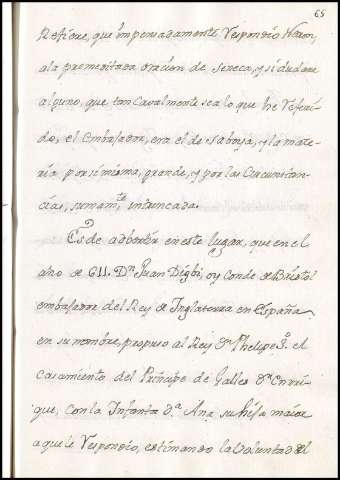 65
Refiere, que impensadamente Respondió Neron,
ala premeditada oracion de Seneca, y si dudare
alguno, que tan Casalmente sea lo que he Referi-
do, el Embajador, era el de Saboya, y la mate-
ria por si misma, grande, y por las Circunstan-
cias, sumamte intrincada.
Es de advertir en este lugar, que en el
año de 611. Dn Juan Digbi, oy Conde de Bristol
embajador del Rey de Inglaterra en España
en su nombre, propuso al Rey Dn Phelipe 3º el
casamiento del Principe de Galles Dn Enrri-
que, con la Infanta Dª Ana su hija maior
a que le Respondio, estimando la Voluntad del